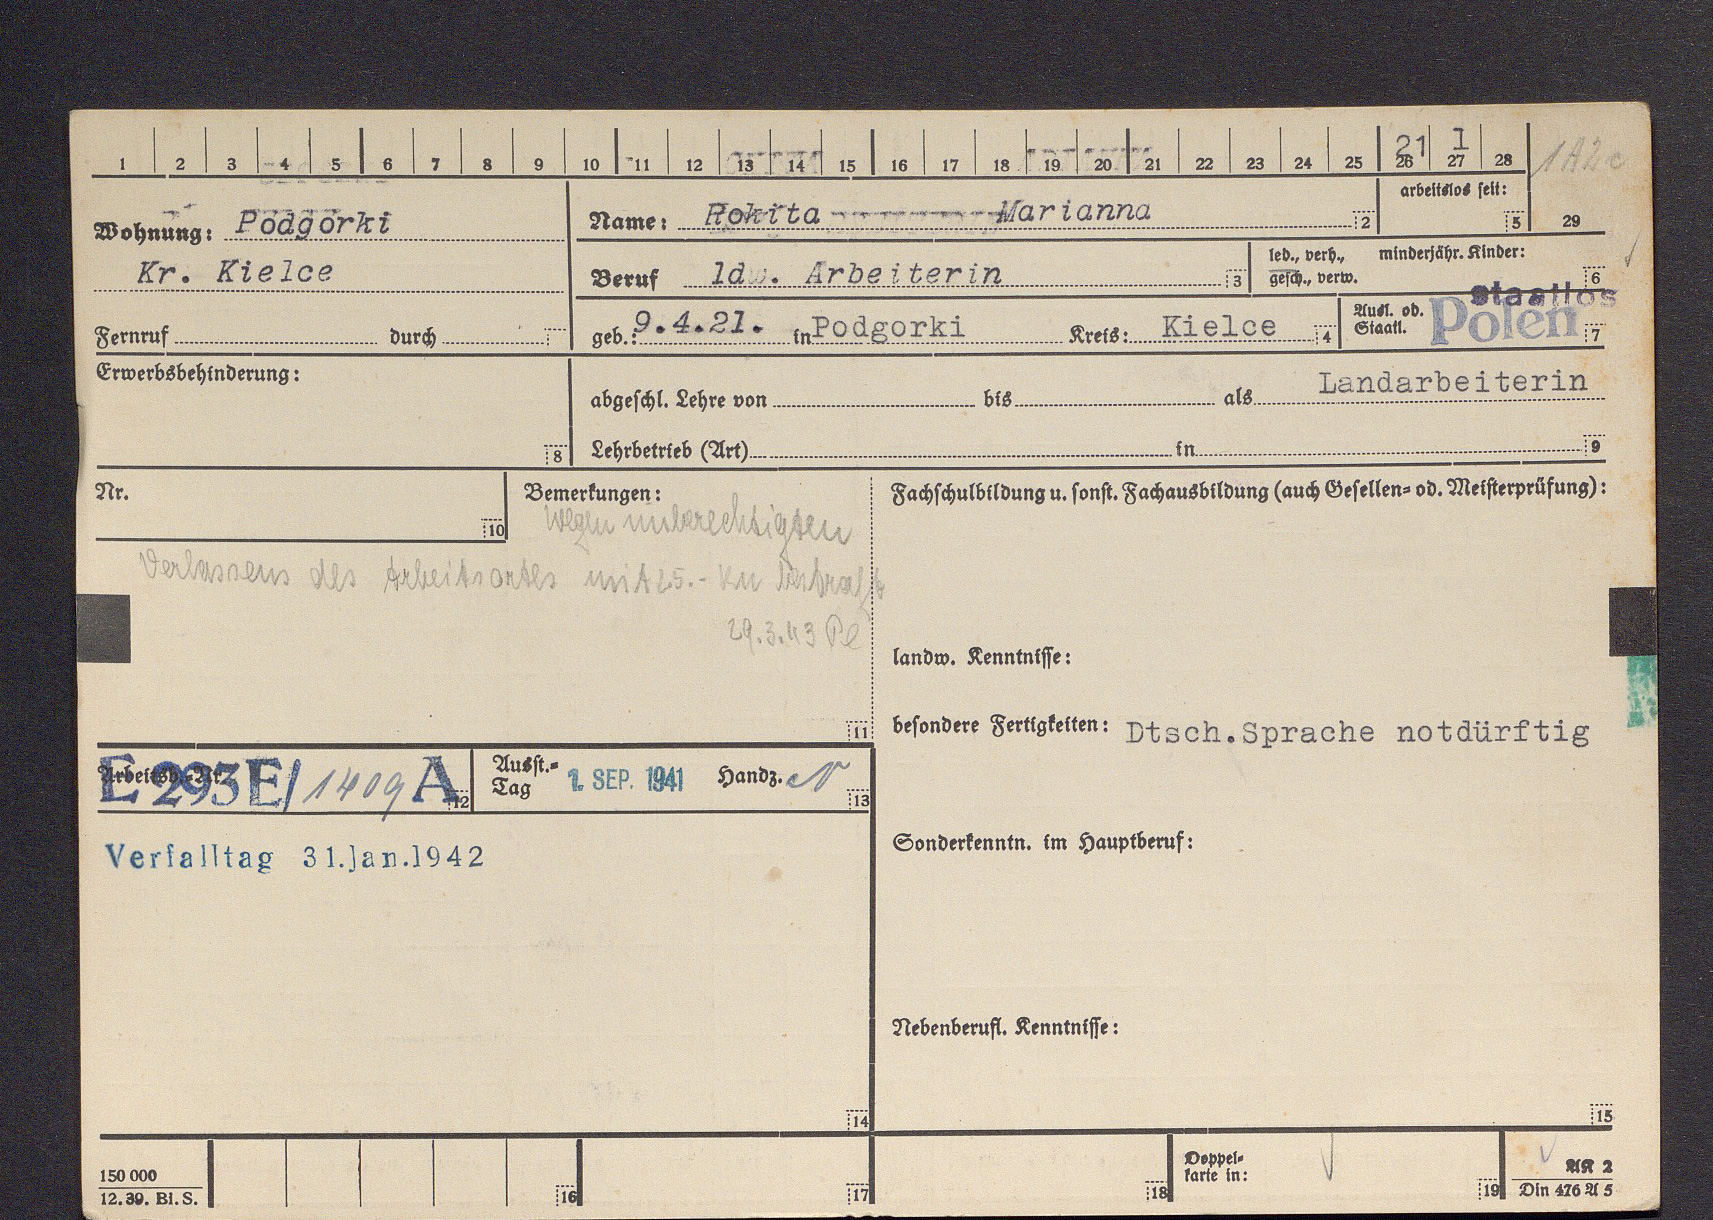 1 2 3 4 5 6 7 8 9 10 11 12 13 14 15 16 17 18 19 20 21 22 23 24 25 26 27 28
21 1
1A2c
arbeitslos seit:
Wohnung: Podgorki
Name: Rokita Marianna 2
5 29
Kr. Kielce
Beruf ldw. Arbeiterin 3
led., verh., minderjähr. Kinder:
gesch., verw. 6
staatlos
Fernruf durch
geb.: 9.4.21. in Podgorki Kreis: Kielce 4
Ausl. od. Staatl. Polen 7
Erwerbsbehinderung:
8
abgeschl. Lehre von bis als Landarbeiterin
Lehrbetrieb (Art) in 9
Nr.
10
Bemerkungen:
Wegen unberechtigten
Verlassens des Arbeitsortes mit 25.-
29.3.43
11
Fachschulbildung u. sonst. Fachausbildung (auch Gesellen- od. Meisterprüfung):
landw. Kenntnisse:
besondere Fertigkeiten: Dtsch.Sprache notdürftig
Arbeitsb.-Nr.
E 293E/1409 A 12
Ausst.-
Tag 1. SEP. 1941 Handz. 13
Verfalltag 31.Jan.1942
14
Sonderkenntn. im Hauptberuf:
Nebenberufl. Kenntnisse:
15
150 000
12. 39. Bl. S.
16 17 18
Doppel-
karte in: 19
AK 2
Din 476 A 5